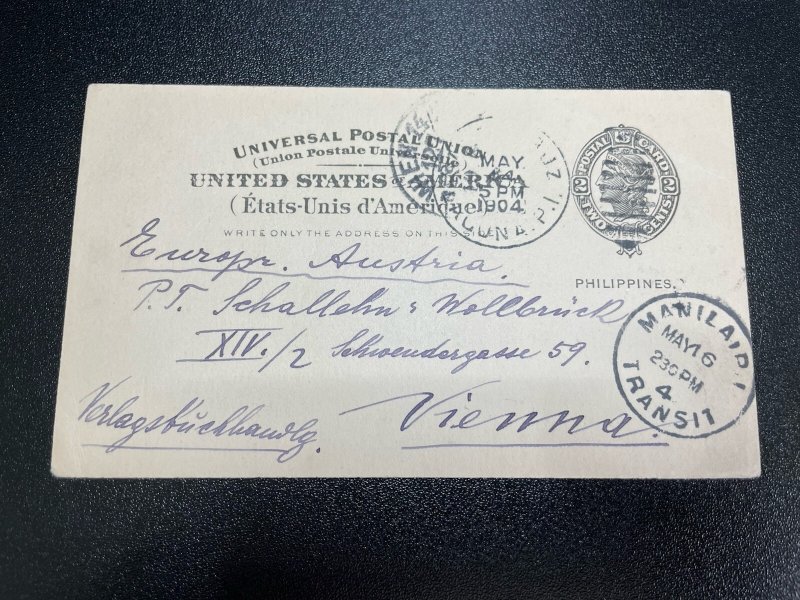 UNIVERSAL POSTAL UNION
(Union Postale Universelle)
UNITED STATES OF AMERICA
(États-Unis d'Amérique)
WRITE ONLY THE ADDRESS ON THIS SIDE
MAY
5 PM
1904
LAGUNA. P.I.
WIEN 14
POSTAL CARD
2 2
TWO CENTS
PHILIPPINES.
MANILA, P.I.
MAY 16
230 PM
4
TRANSIT
Europe. Austria.
P.T. Schallehn & Wollbrück
XIV./2 Schwendergasse 59.
Verlagsbuchhandlg.
Vienna.